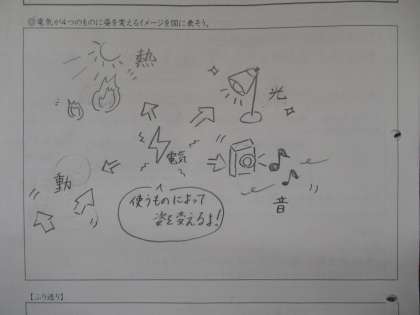 ◎電気が4つのものに姿を変えるイメージを図に表そう。
熱
光
電気
動
使うものによって
姿を変えるよ!
音
【ふり返り】